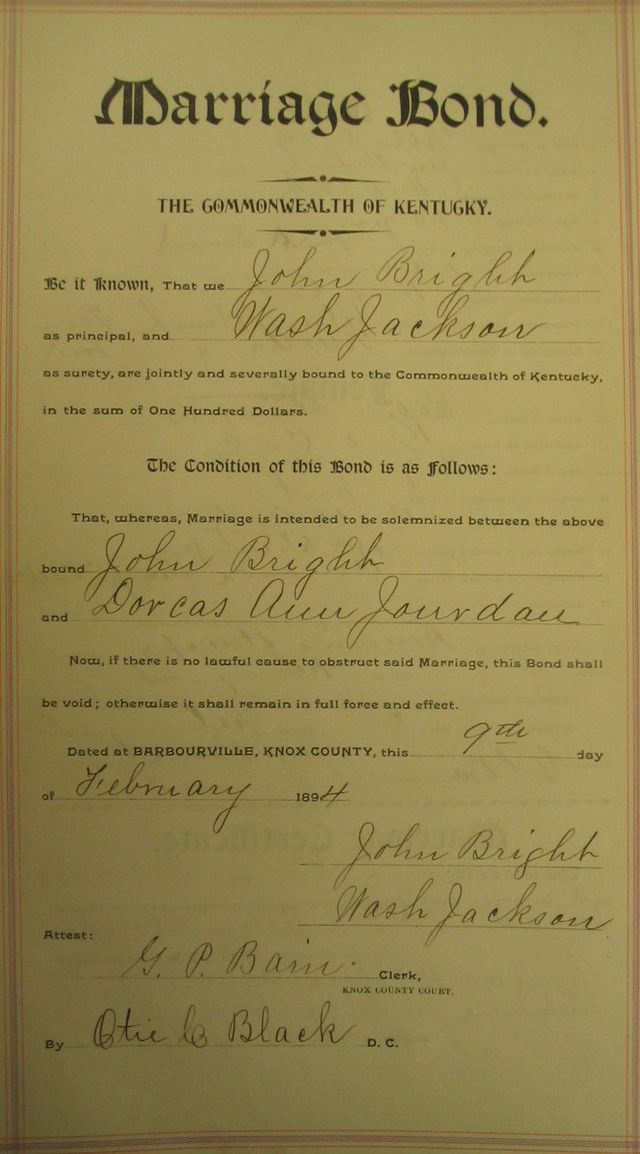 Marriage Bond.
THE COMMONWEALTH OF KENTUCKY.
Be it Known, That we John Bright
as principal, and Wash Jackson
as surety, are jointly and severally bound to the Commonwealth of Kentucky,
in the sum of One Hundred Dollars.
The Condition of this Bond is as Follows:
That, whereas, Marriage is intended to be solemnized between the above
bound John Bright
and Dorcas Ann Jourdan
Now, if there is no lawful cause to obstruct said Marriage, this Bond shall
be void; otherwise it shall remain in full force and effect.
Dated at BARBOURVILLE, KNOX COUNTY, this 9th day
of February 1894
John Bright
Wash Jackson
Attest:
G. P. Bain. Clerk,
KNOX COUNTY COURT.
By Otie C Black D. C.